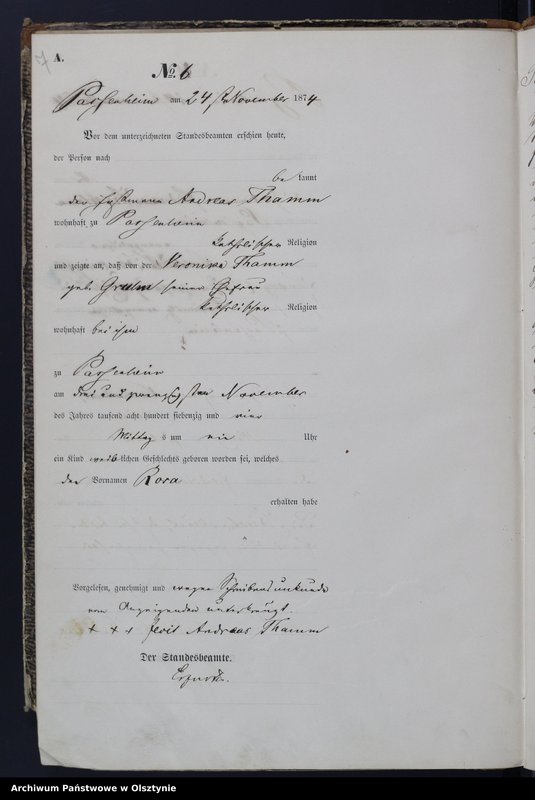 A.
7
No. 6
Passenheim am 24 ten November 1874
Vor dem unterzeichneten Standesbeamten erschien heute,
der Person nach
be kannt
der Andreas Thamm
wohnhaft zu Passenheim
katholischer Religion
und zeigte an, daß von der Veronika Thamm
geb. seiner Ehefrau
katholischer Religion
wohnhaft bei ihm
zu Passenheim
am drei und zwanzigsten November
des Jahres tausend acht hundert siebenzig und vier
Mittag s um Uhr
ein Kind weib-lichen Geschlechts geboren worden sei, welches
den Vornamen Rosa
erhalten habe
Vorgelesen, genehmigt und wegen Schreibensunkunde
vom Anzeigenden unterkreuzt.
+ + + Andreas Thamm
Der Standesbeamte.
Archiwum Państwowe w Olsztynie